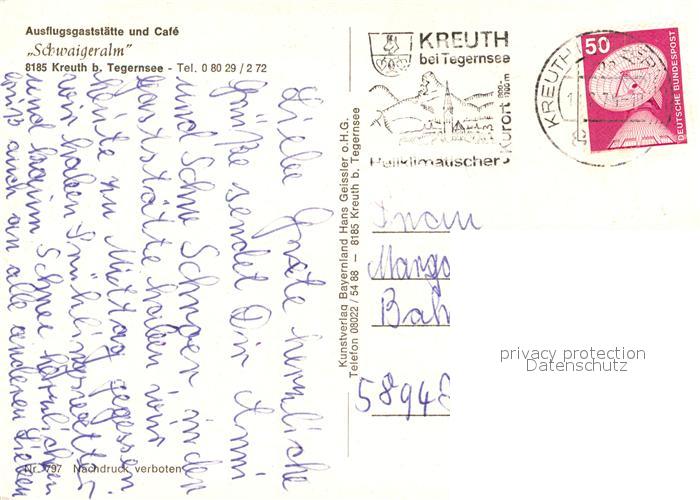 Ausflugsgaststätte und Café
„Schwaigeralm"
8185 Kreuth b. Tegernsee - Tel. 0 80 29 / 2 72
KREUTH
bei Tegernsee
Heilklimatischer Kurort
KREUTH
50
DEUTSCHE BUNDESPOST
Liebe Grete herzliche
Grüße sendet Dir Anni
und Schw
in der
Gaststätte haben wir
heute zu Mittag gegessen.
wir haben Frühlingswetter
und kaum Schnee herzlichen
gruß auch an alle anderen Lieben
Kunstverlag Bayernland Hans Geissler o.H.G.
Telefon 08022 / 54 88 — 8185 Kreuth b. Tegernsee
Frau
Margo
Bah
5894
privacy protection
Datenschutz
Nr. 797 Nachdruck verboten